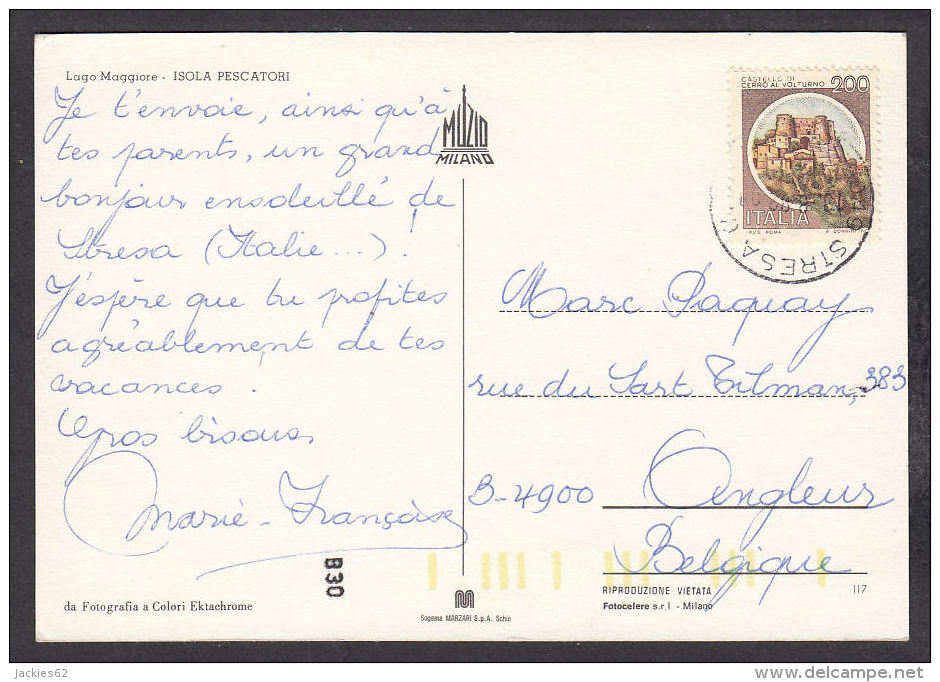 Lago Maggiore - ISOLA PESCATORI
Je t'envoie, ainsi qu'à
tes parents, un grand
bonjour ensoleillé de
Stresa (Italie...)!
J'espère que tu profites
agréablement de tes
vacances.
Gros bisous,
Marie-Françoise
B30
da Fotografia a Colori Ektachrome
MUZIO
MILANO
Sogema MARZARI S.p.A. Schio
CASTELLO DI
CERRO AL VOLTURNO 200
ITALIA
I.P.Z.S. ROMA
STRESA
Marc Paquay
rue du Sart Tilman, 383
B-4900 Angleur
Belgique
RIPRODUZIONE VIETATA
Fotocelere s.r.l - Milano
117
jackies62
www.delcampe.net